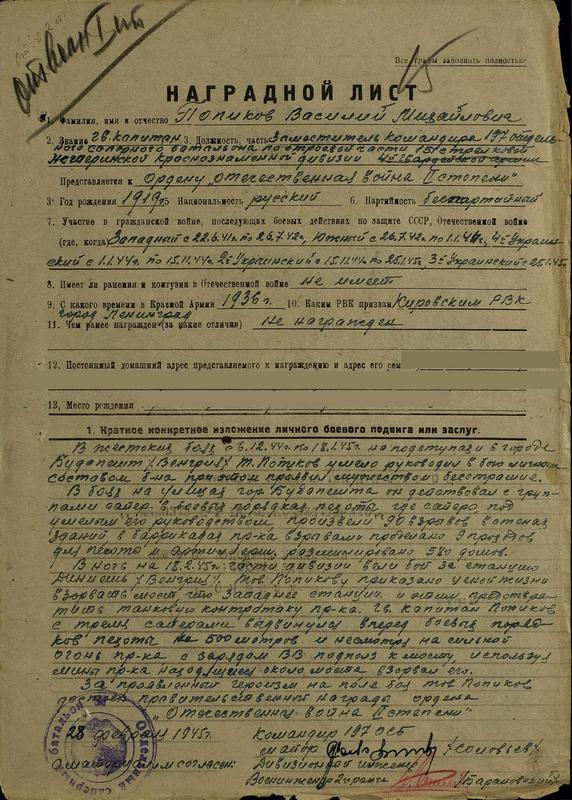 Все графы заполнять полностью
15
НАГРАДНОЙ ЛИСТ
1. Фамилия, имя и отчество Попиков Василий Михайлович
2. Звание гв. капитан 3. Должность, часть Заместитель командира 197 отдель-
ного саперного батальона по строевой части 151 стрелковой
Жмеринской Краснознаменной дивизии
Представляется к Ордену "Отечественная война II степени"
3. Год рождения 1919 5. Национальность русский 6. Партийность беспартийный
7. Участие в гражданской войне, последующих боевых действиях по защите СССР, Отечественной войне
(где, когда) Западный с 22.6.41г. по 26.7.42г., Южный с 26.7.42г. по 1.1.44г., 4й Украин-
ский с 1.1.44г. по 15.11.44г. 2й Украинский с 15.11.44г. по 25.1.45г., 3й Украинский с 25.1.45г.
8. Имеет ли ранения и контузии в Отечественной войне не имеет
9. С какого времени в Красной Армии 1936 г. 10. Каким РВК призван Кировским РВК
город Ленинград
11. Чем ранее награжден (за какие отличия) Не награжден
12. Постоянный домашний адрес представляемого к награждению и адрес его сем
13. Место рождения
1. Краткое конкретное изложение личного боевого подвига или заслуг.
В жестоких боях с 6.12.44г. по 18.1.45г. на подступах и в городе
Будапешт /Венгрия/ т. Попиков умело руководил в бою личным
составом б-на при этом проявил мужество и бесстрашие.
В боях на улицах гор. Будапешта он действовал с груп-
пами сапер в боевых порядках пехоты, где сапера, под
умелым его руководством, произвели 90 взрывов в стенах
зданий, в баррикадах пр-ка взрывами проделано 9 проходов
для пехоты и артиллерии, разминировано 580 домов.
В ночь на 18.2.45г. части дивизии вели бой за станцию
/Венгрия/. Тов. Попикову приказано ценой жизни
взорвать мост, что западнее станции и этим предотвра-
тить танковую контратаку пр-ка. Гв. капитан Попиков
с тремя саперами выдвинулся вперед боевых поряд-
ков пехоты на 500 метров, и несмотря на сильный
огонь пр-ка с зарядом ВВ подполз к мосту, используя
мины пр-ка находящиеся около моста взорвал его.
За проявленный героизм на поле боя тов. Попиков
достоин правительственной награды ордена
"Отечественная война II степени"
28 февраля 1945г. Командир 197 ОСБ
майор /Соловьев/
С материалом согласен: Дивизионный инженер
Военинженер 2 ранга /Барановский/